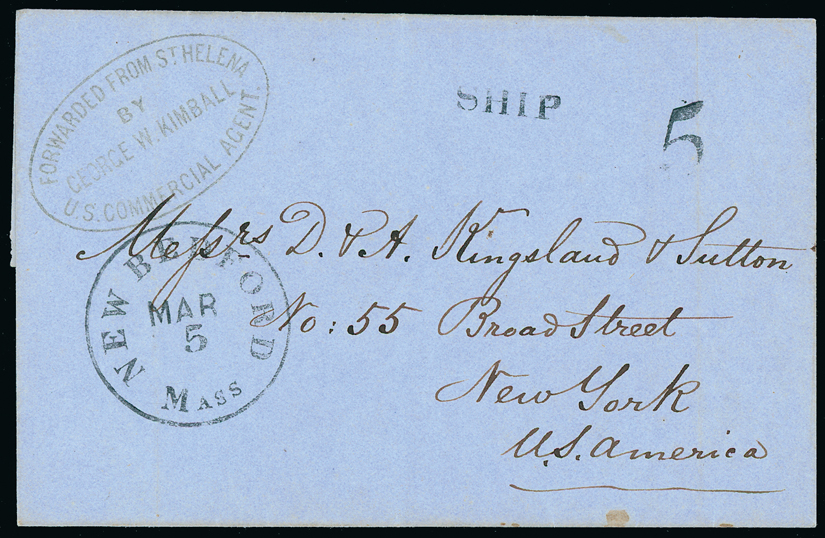 FORWARDED FROM ST HELENA
BY
GEORGE W. KIMBALL
U.S. COMMERCIAL AGENT.
SHIP
5
Messrs D. & A. Kingsland & Sutton
No: 55 Broad Street
New York
U.S. america
NEW BEDFORD
MAR
5
MASS